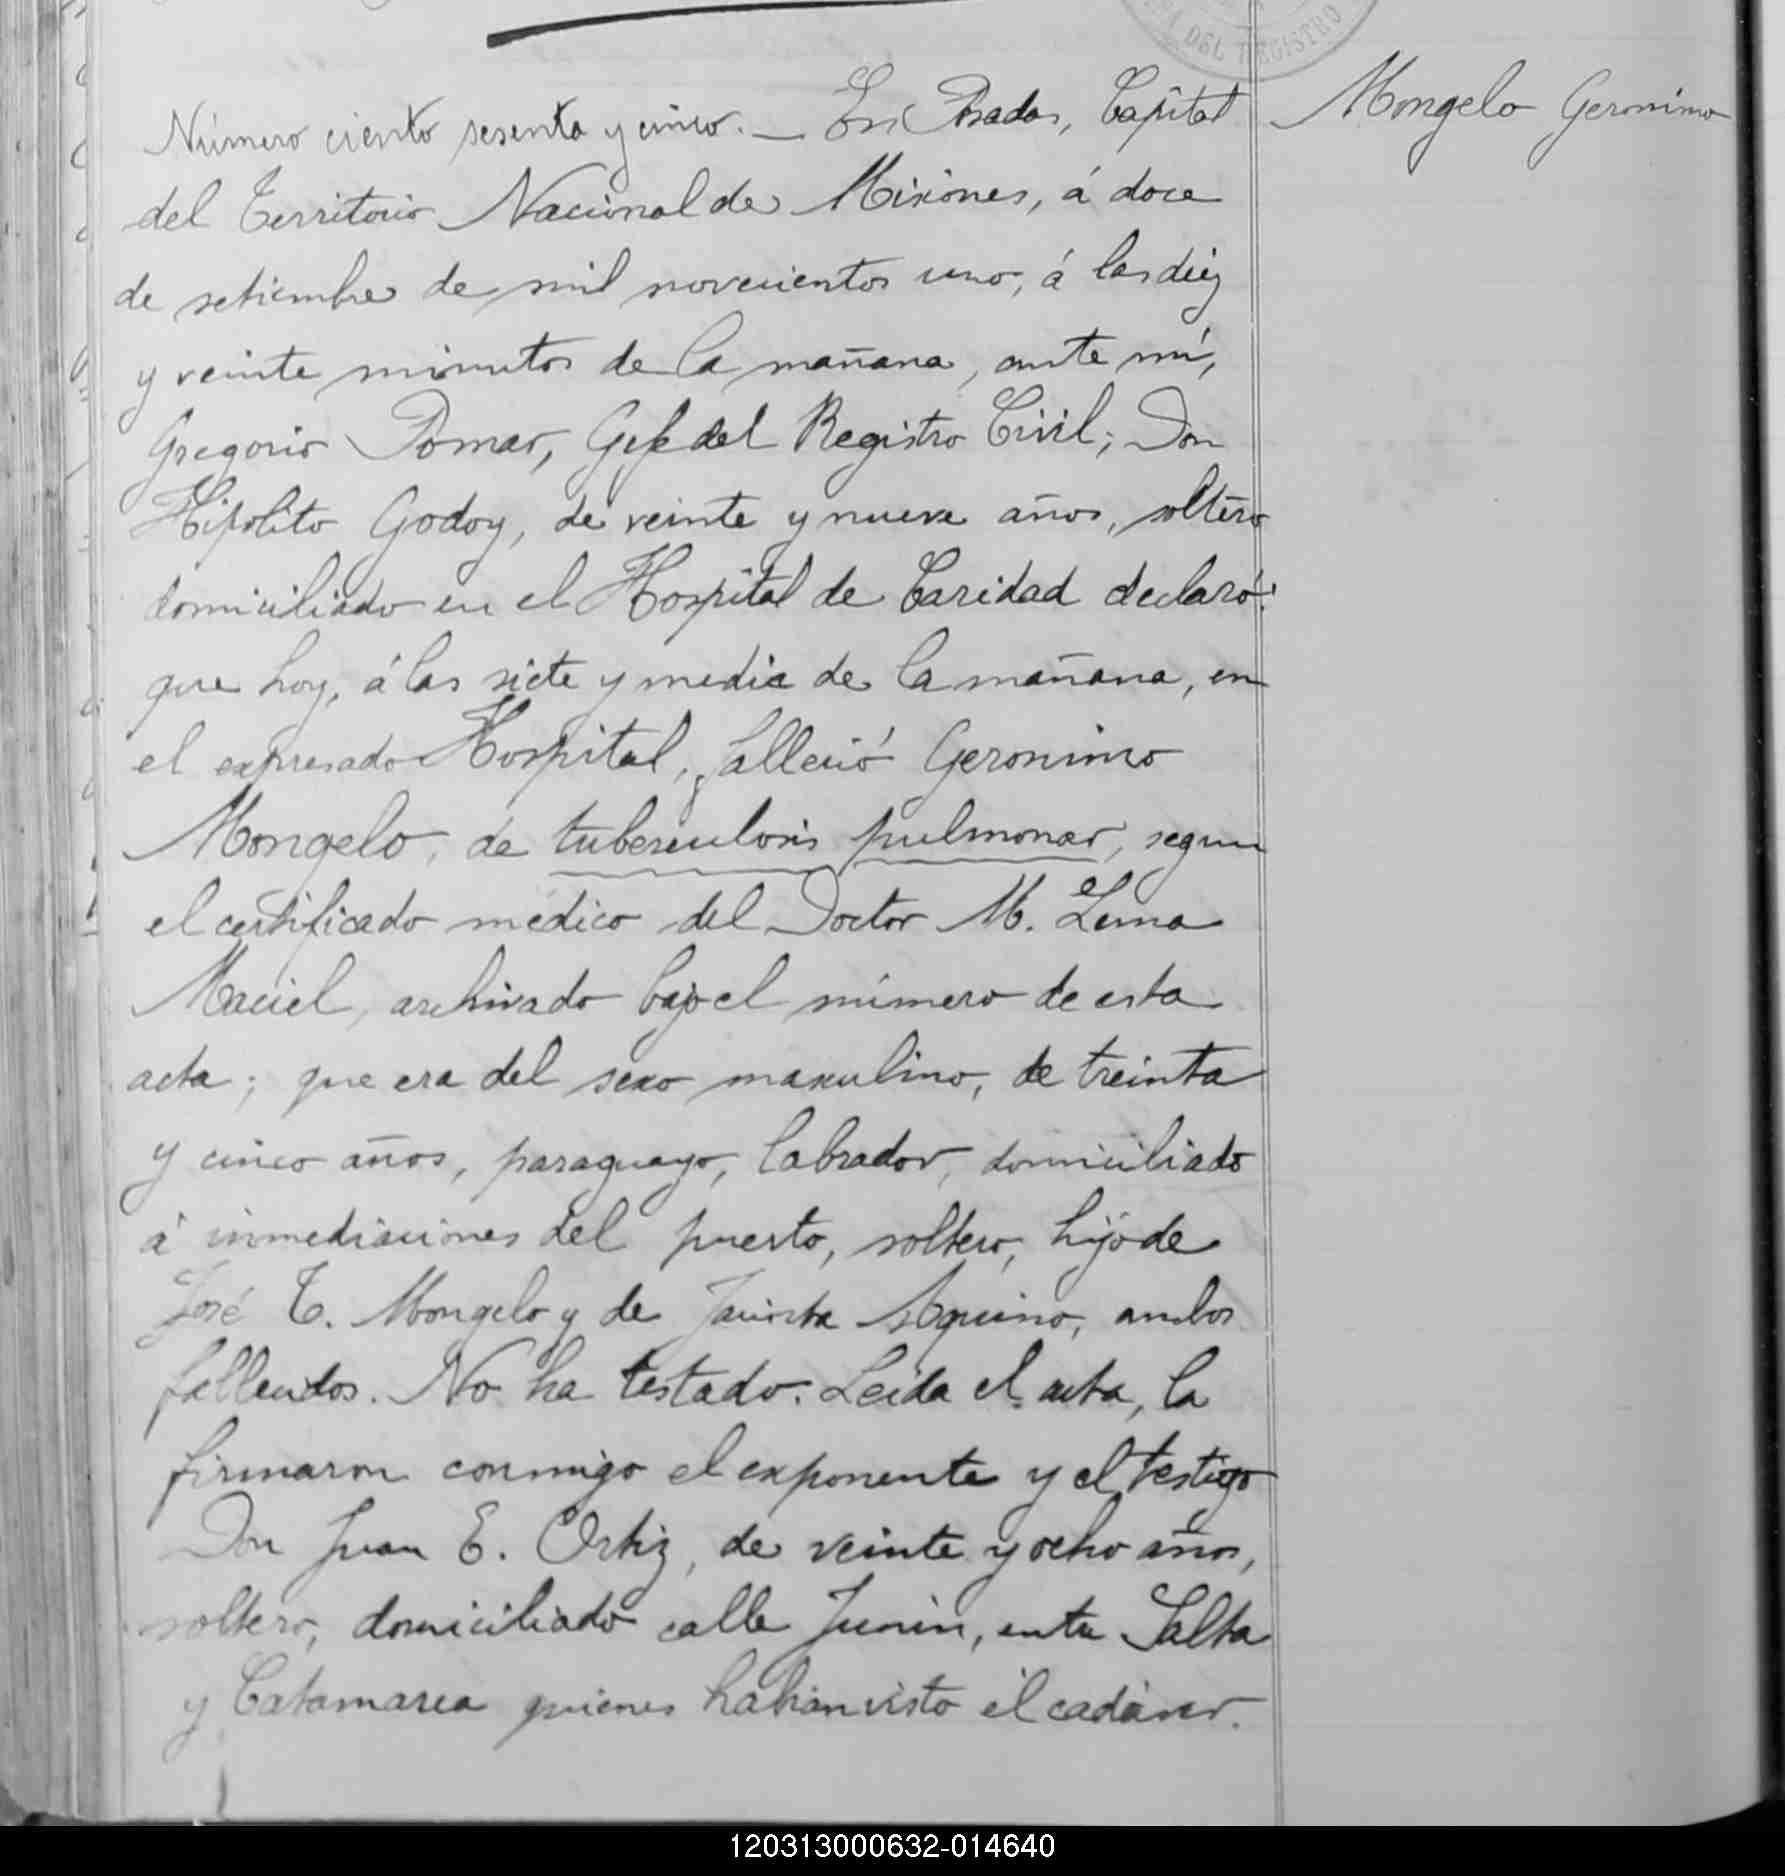 DEL REGISTRO
Mongelo Geronimo
Número ciento sesenta y cinco. — En Posadas, Capital
del Territorio Nacional de Misiones, á doce
de setiembre de mil novecientos uno, á las diez
y veinte minutos de la mañana, ante mí,
Gregorio Pomar, Gefe del Registro Civil; Don
Hipolito Godoy, de veinte y nueve años, soltero
domiciliado en el Hospital de Caridad declaró:
que hoy, á las siete y media de la mañana, en
el expresado Hospital, falleció Geronimo
Mongelo, de tuberculosis pulmonar, segun
el certificado médico del Doctor M. Lema
Maciel, archivado bajo el número de esta
acta; que era del sexo masculino, de treinta
y cinco años, paraguayo, labrador, domiciliado
á inmediaciones del puerto, soltero, hijo de
José T. Mongelo y de Jacinta Aquino, ambos
fallecidos. No ha testado. Leida el acta, la
firmaron conmigo el exponente y el testigo
Don Juan E. Ortiz, de veinte y ocho años,
soltero, domiciliado calle Junin, entre Salta
y Catamarca quienes habian visto el cadáver.
120313000632-014640